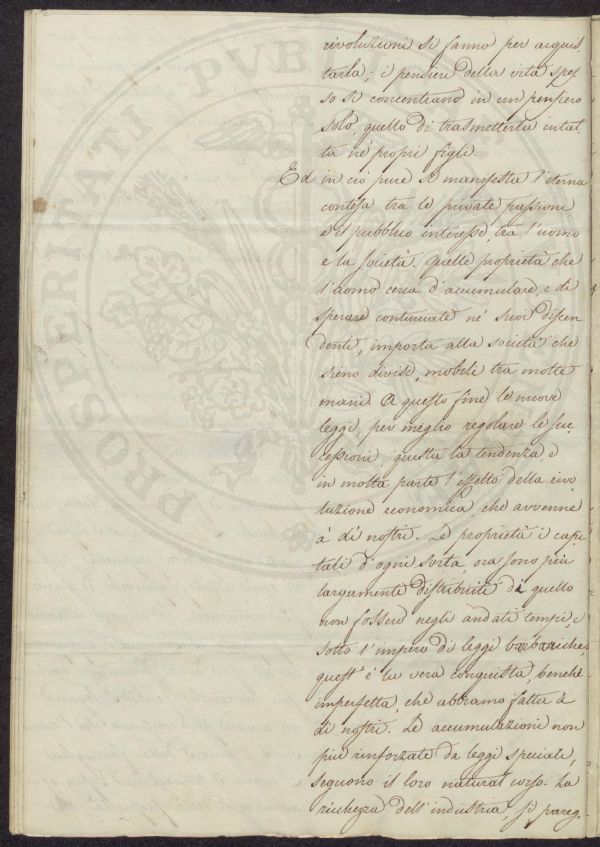 rivoluzioni si fanno per acquis
tarla; i pensieri della vita spes
so si concentrano in un pensiero
solo, quello di trasmetterla intat
ta ne' propri figli.
Ed in ciò pure si manifesta l'eterna
contesa tra le private passioni
e il pubblico interesse, tra l'uomo
e la società. Quelle proprietà che
l'uomo cerca d'accumulare, e di
sperare continuate ne' suoi discen
denti, importa alla società che
sieno divise, mobili tra molte
mani. A questo fine le nuove
leggi, per meglio regolare le suc
cessioni; questa la tendenza e
in molta parte l'effetto della rivo
luzione economica, che avvenne
a' dì nostri. Le proprietà i capi
tali d'ogni sorta, ora sono più
largamente distribuiti di quello
non fossero negli andati tempi, e
sotto l'impero di leggi barbariche.
quest' è la vera conquista, benchè
imperfetta, che abbiamo fatta a'
dì nostri. Le accumulazioni non
più rinforzate da leggi speciali,
seguono il loro natural corso. La
ricchezza dell'industria, si pareg
PROSPERITATI PUBLICAE